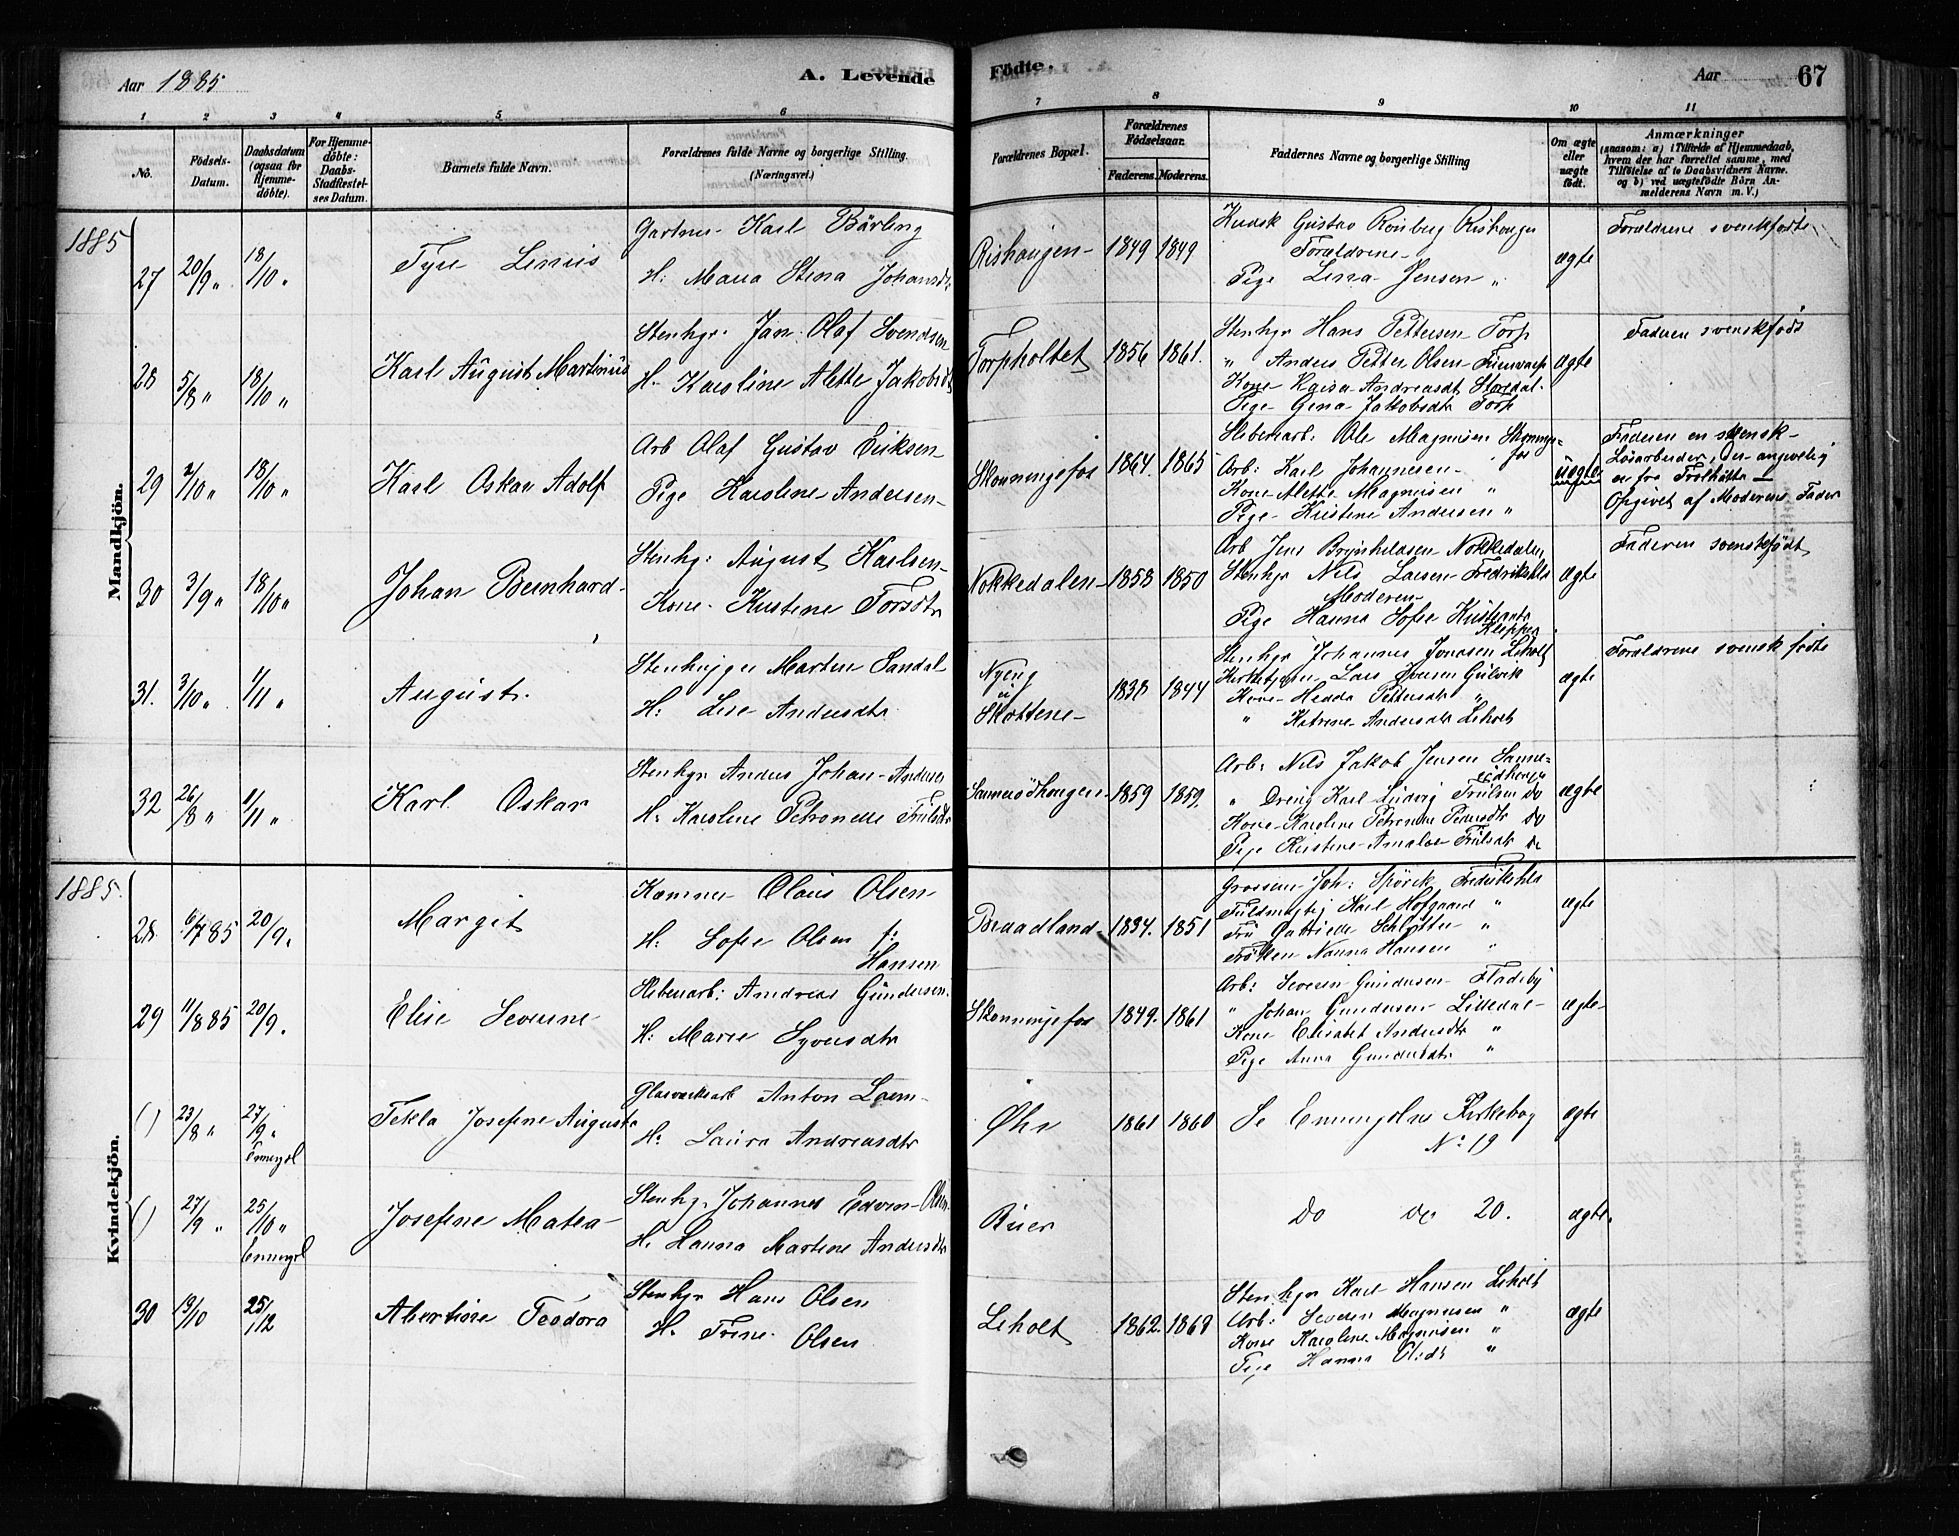 Aar 1885
A. Levende
Födte.
Aar
67
1
2
3
4
5
6
7
8
9
10
11
No.
Födsels-Datum.
Daabsdatum (ogsaa for Hjemmedöbte).
For Hjemmedöbte: Daabs-Stadfæstelses Datum.
Barnets fulde Navn.
Forældrenes fulde Navne og borgerlige Stilling (Næringsvei.)
Forældrenes Bopæl.
Forældrenes Födselsaar.
Faderens. Moderens.
Faddernes Navne og borgerlige Stilling
Om ægte eller uægte födt.
Anmærkninger
(saasom: a) i Tilfælde af Hjemmedaab,
hvem der har forrettet samme, med
Tilföielse af to Daabsvidners Navne.
og b) ved uægtefödte Börn An-
melderens Navn m. V.)
Mandkjön.
1885
27 20/9 " 18/10 "
Tyre Linus
Gartner Karl Bärling
H: Maria Stena Johansdtr
Rishaugen 1849 1849
Kudsk Gustav Rönberg Rishaugen
Forældrene
Pige Lina Jensen "
ægte
Forældrene svenskfødte
28 5/8 " 18/10 "
Karl August Martinius
Stenhgr. Jan Olaf Svendsen
H. Karoline Alette Jakobsdtr
Torpholtet 1856 1861.
Stenhgr Hans Pettersen Torp
" Anders Petter Olsen
Kone Kaisa Andreasdt Storedal
Pige Gina Jakobsdtr Torp
ægte
Faderen svenskfødt
29 2/10 " 18/10 "
Karl Oskar Adolf
Arb Olaf Gustav Eriksen
Pige Karoline Andersen
Skonningsfos 1864. 1865
Sliberiarb: Ole Magnusen Skonningsfos
Arb: Karl Johannesen "
Kone Alette Magnusen "
Pige Kristine Andersen "
uægte
Faderen en svensk
Løsarbeider, der angivelig
er fra Trolhätta
Opgivet af Moderens Fader
30 3/9 " 18/10 "
Johan Bernhard
Stenhg: August Karlsen
Kone Kristine Torsdtr
Nokkedalen 1858 1850
Arb Jens Brynhildsen Nokkedalen
Stenhgr Nils Larsen Fredrikshld
Moderen
Pige Hanna Sofie
ægte
Faderen svenskfødt
31. 3/10 " 1/11 "
August.
Stenhugger Martin Sandal
H: Lise Andersdtr
Nyeng
i
Skottene 1838 1844
Stenhgr Johannes Jonasen Liholt
Lars Iversen Gulvik
Kone Hedda Pettersdtr "
" Katrine Andersdtr Liholt
ægte
Forældrene svensk fødte
32 26/8 " 1/11 "
Karl Oskar
Stenhgr Anders Johan Andersen
H. Karoline Petronelle Trulsdtr
Sannerödhaugen 1859 1859.
Arb: Nils Jakob Jensen Sannerödhaugen
" Dreng Karl Ludvig Trulsen do
Kone Karoline Petronelle Pedersdtr do
Pige Kristine Amalie Trulsdtr do
ægte
Kvindekjön.
1885.
28. 6/7 85 20/9.
Margit
Kamner Olaus Olsen
H. Sofie Olsen f:
Hansen
Braadland 1834. 1851
Grosserer Joh: Spörck Fredrikshld
Fuldmegtig Karl Hofgaard "
Fru Gabrielle Schlytter "
Frøken Nanna Hansen "
ægte
29 11/8 85 20/9.
Elise Severine
Sliberiarb: Andreas Gundersen
H: Marie Syversdtr
Skonningsfos 1849. 1861
Arb: Severin Gundersen Fladeby
" Johan Gundersen Lilledal
Kone Elisabet Andersdtr "
Pige Anna Gundersdtr "
ægte
() 23/8 " 27/9 " Enningd
Tekla Josefine Augusta
Glasverksarb Anton Larsen
H: Laura Andreasdtr
Øhr 1861 1860
Se Enningdalens Kirkebog
No 19
ægte
() 27/9 " 25/10 " Enningd
Josefine Matea
Stenhg. Johannes Edvin Olsen
H. Hanna Martine Andersdtr
Buer
Do do 20.
ægte
30 19/10 25/12
Abertine Teodora
Stenhgr Hans Olsen
H. Trine Olsen
Liholt 1862. 1869
Stenhgr Karl Hansen Liholt
Arb: Severin Magnusen "
Kone Karoline Magnusen "
Pige Hanna Olsdtr "
ægte